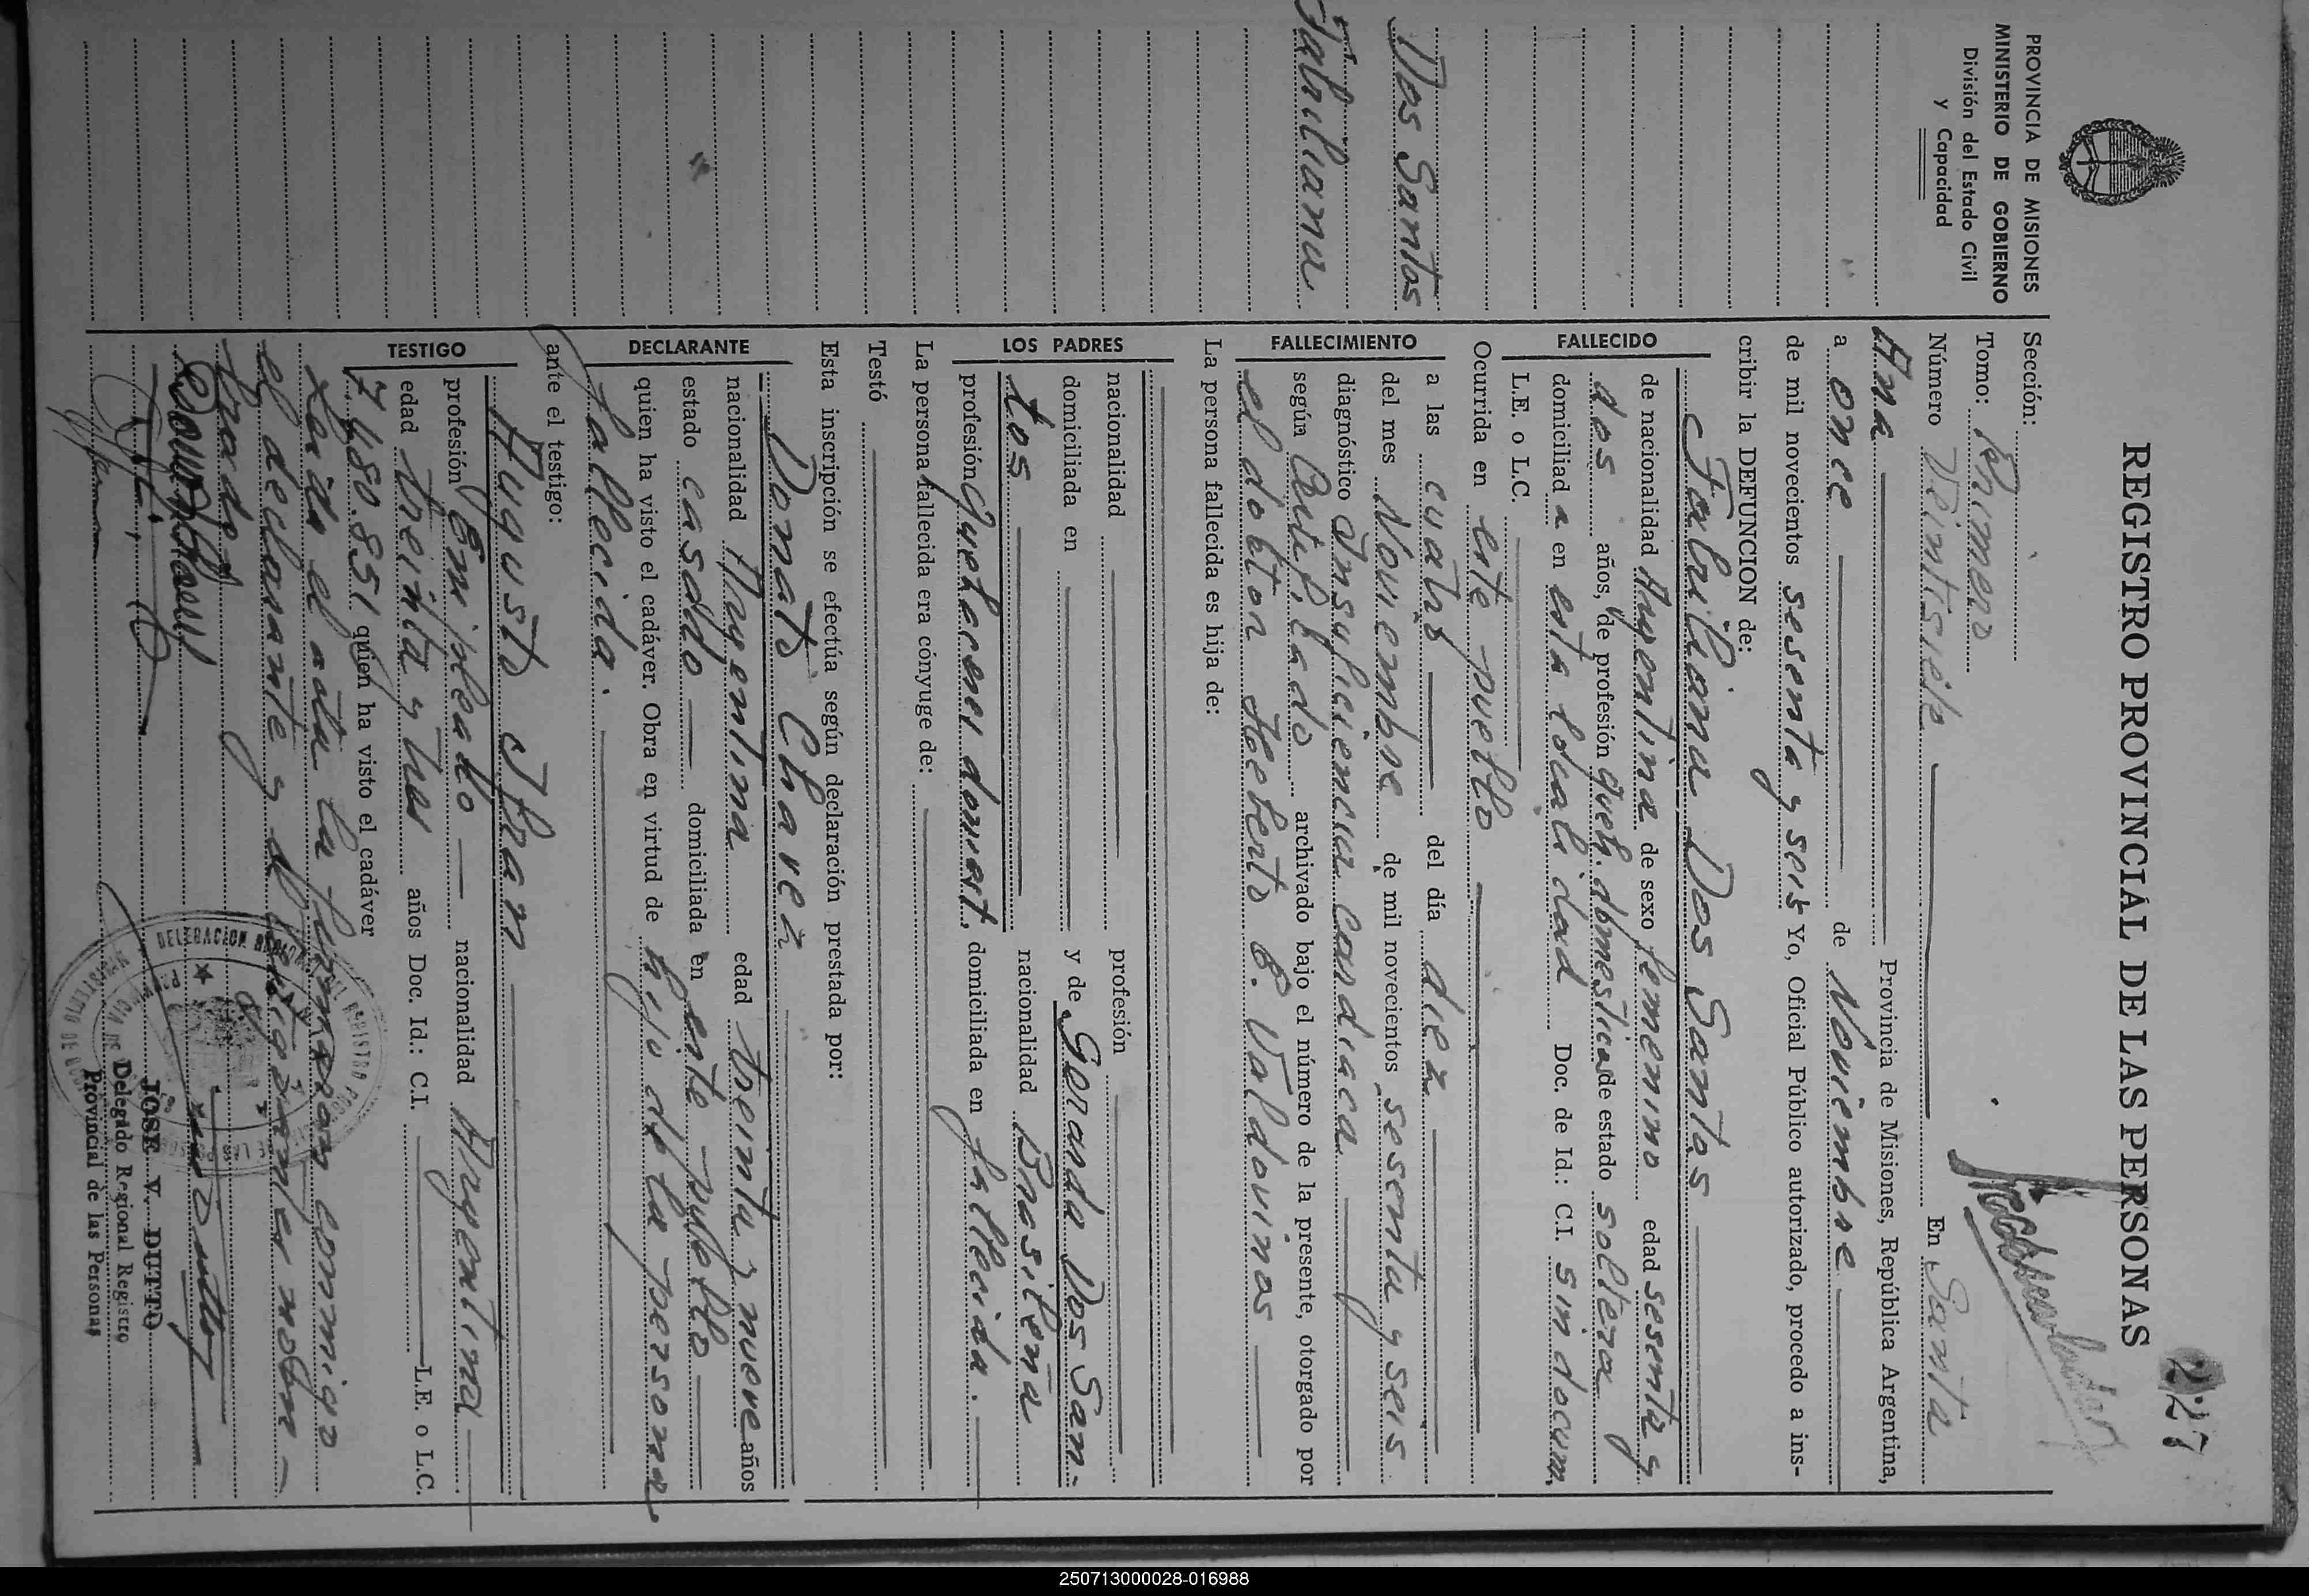 227
REGISTRO PROVINCIAL DE LAS PERSONAS
PROVINCIA DE MISIONES
MINISTERIO DE GOBIERNO
División del Estado Civil
y Capacidad
Sección:
Tomo: Primero
Número Veintisiete En Santa
Ana Provincia de Misiones, República Argentina,
a once de Noviembre
de mil novecientos sesenta y seis Yo, Oficial Público autorizado, procedo a ins-
cribir la DEFUNCION de:
Dos Santos
Fabriliana
FALLECIDO
Fabriliana Dos Santos
de nacionalidad Argentina de sexo femenino edad sesenta y
dos años, de profesión queh. domesticos de estado soltera
domiciliad a en esta localidad Doc. de Id.: C.I. sin docum.
L.E. o L.C.
Ocurrida en este pueblo
FALLECIMIENTO
a las cuatro del día diez
del mes Noviembre de mil novecientos sesenta y seis
diagnóstico Insuficiencia Cardiaca
según Certificado archivado bajo el número de la presente, otorgado por
el doctor Heeberto E. Valdovinos
La persona fallecida es hija de:
LOS PADRES
nacionalidad profesión
domiciliada en y de Geranda Dos San-
tos nacionalidad Brasileña
profesión Quehaceres domest. domiciliada en fallecida.
La persona fallecida era cónyuge de:
Testó
Esta inscripción se efectúa según declaración prestada por:
DECLARANTE
Donato Chavez
nacionalidad Argentina edad treinta y nueve años
estado casado domiciliada en este pueblo
quien ha visto el cadáver. Obra en virtud de hijo de la persona
fallecida.
ante el testigo:
TESTIGO
Augusto
profesión Empleado nacionalidad Argentina
edad treinta y tres años Doc. Id.: C.I. L.E. o L.C.
7.480.851 quien ha visto el cadáver
Leida el acta la firmaran conmigo
el declarante y el testigo antes nobm-
brado.
JOSE V. DUTTO
Delegado Regional Registro
Provincial de las Personas
250713000028-016988